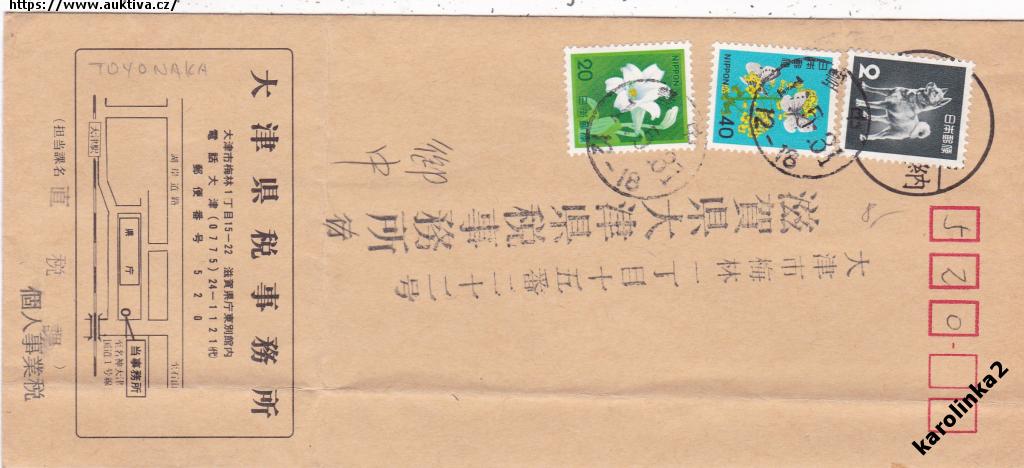 https://www.auktiva.cz/
520
大津市梅林一丁目十五番二十二号
滋賀県大津県税事務所
御中
NIPPON
20
日本郵便
NIPPON
40
日本郵便
2
日本郵便
納
TOYONAKA
大津県税事務所
大津市梅林1丁目15-22 滋賀県庁東別館内
電話大津(0775)24-1121(代)
郵便番号 520
湖岸道路
大津駅
県庁
当事務所
至石山
至名神大津
国道1号線
(担当課名 直税課)
個人事業税
karolinka2